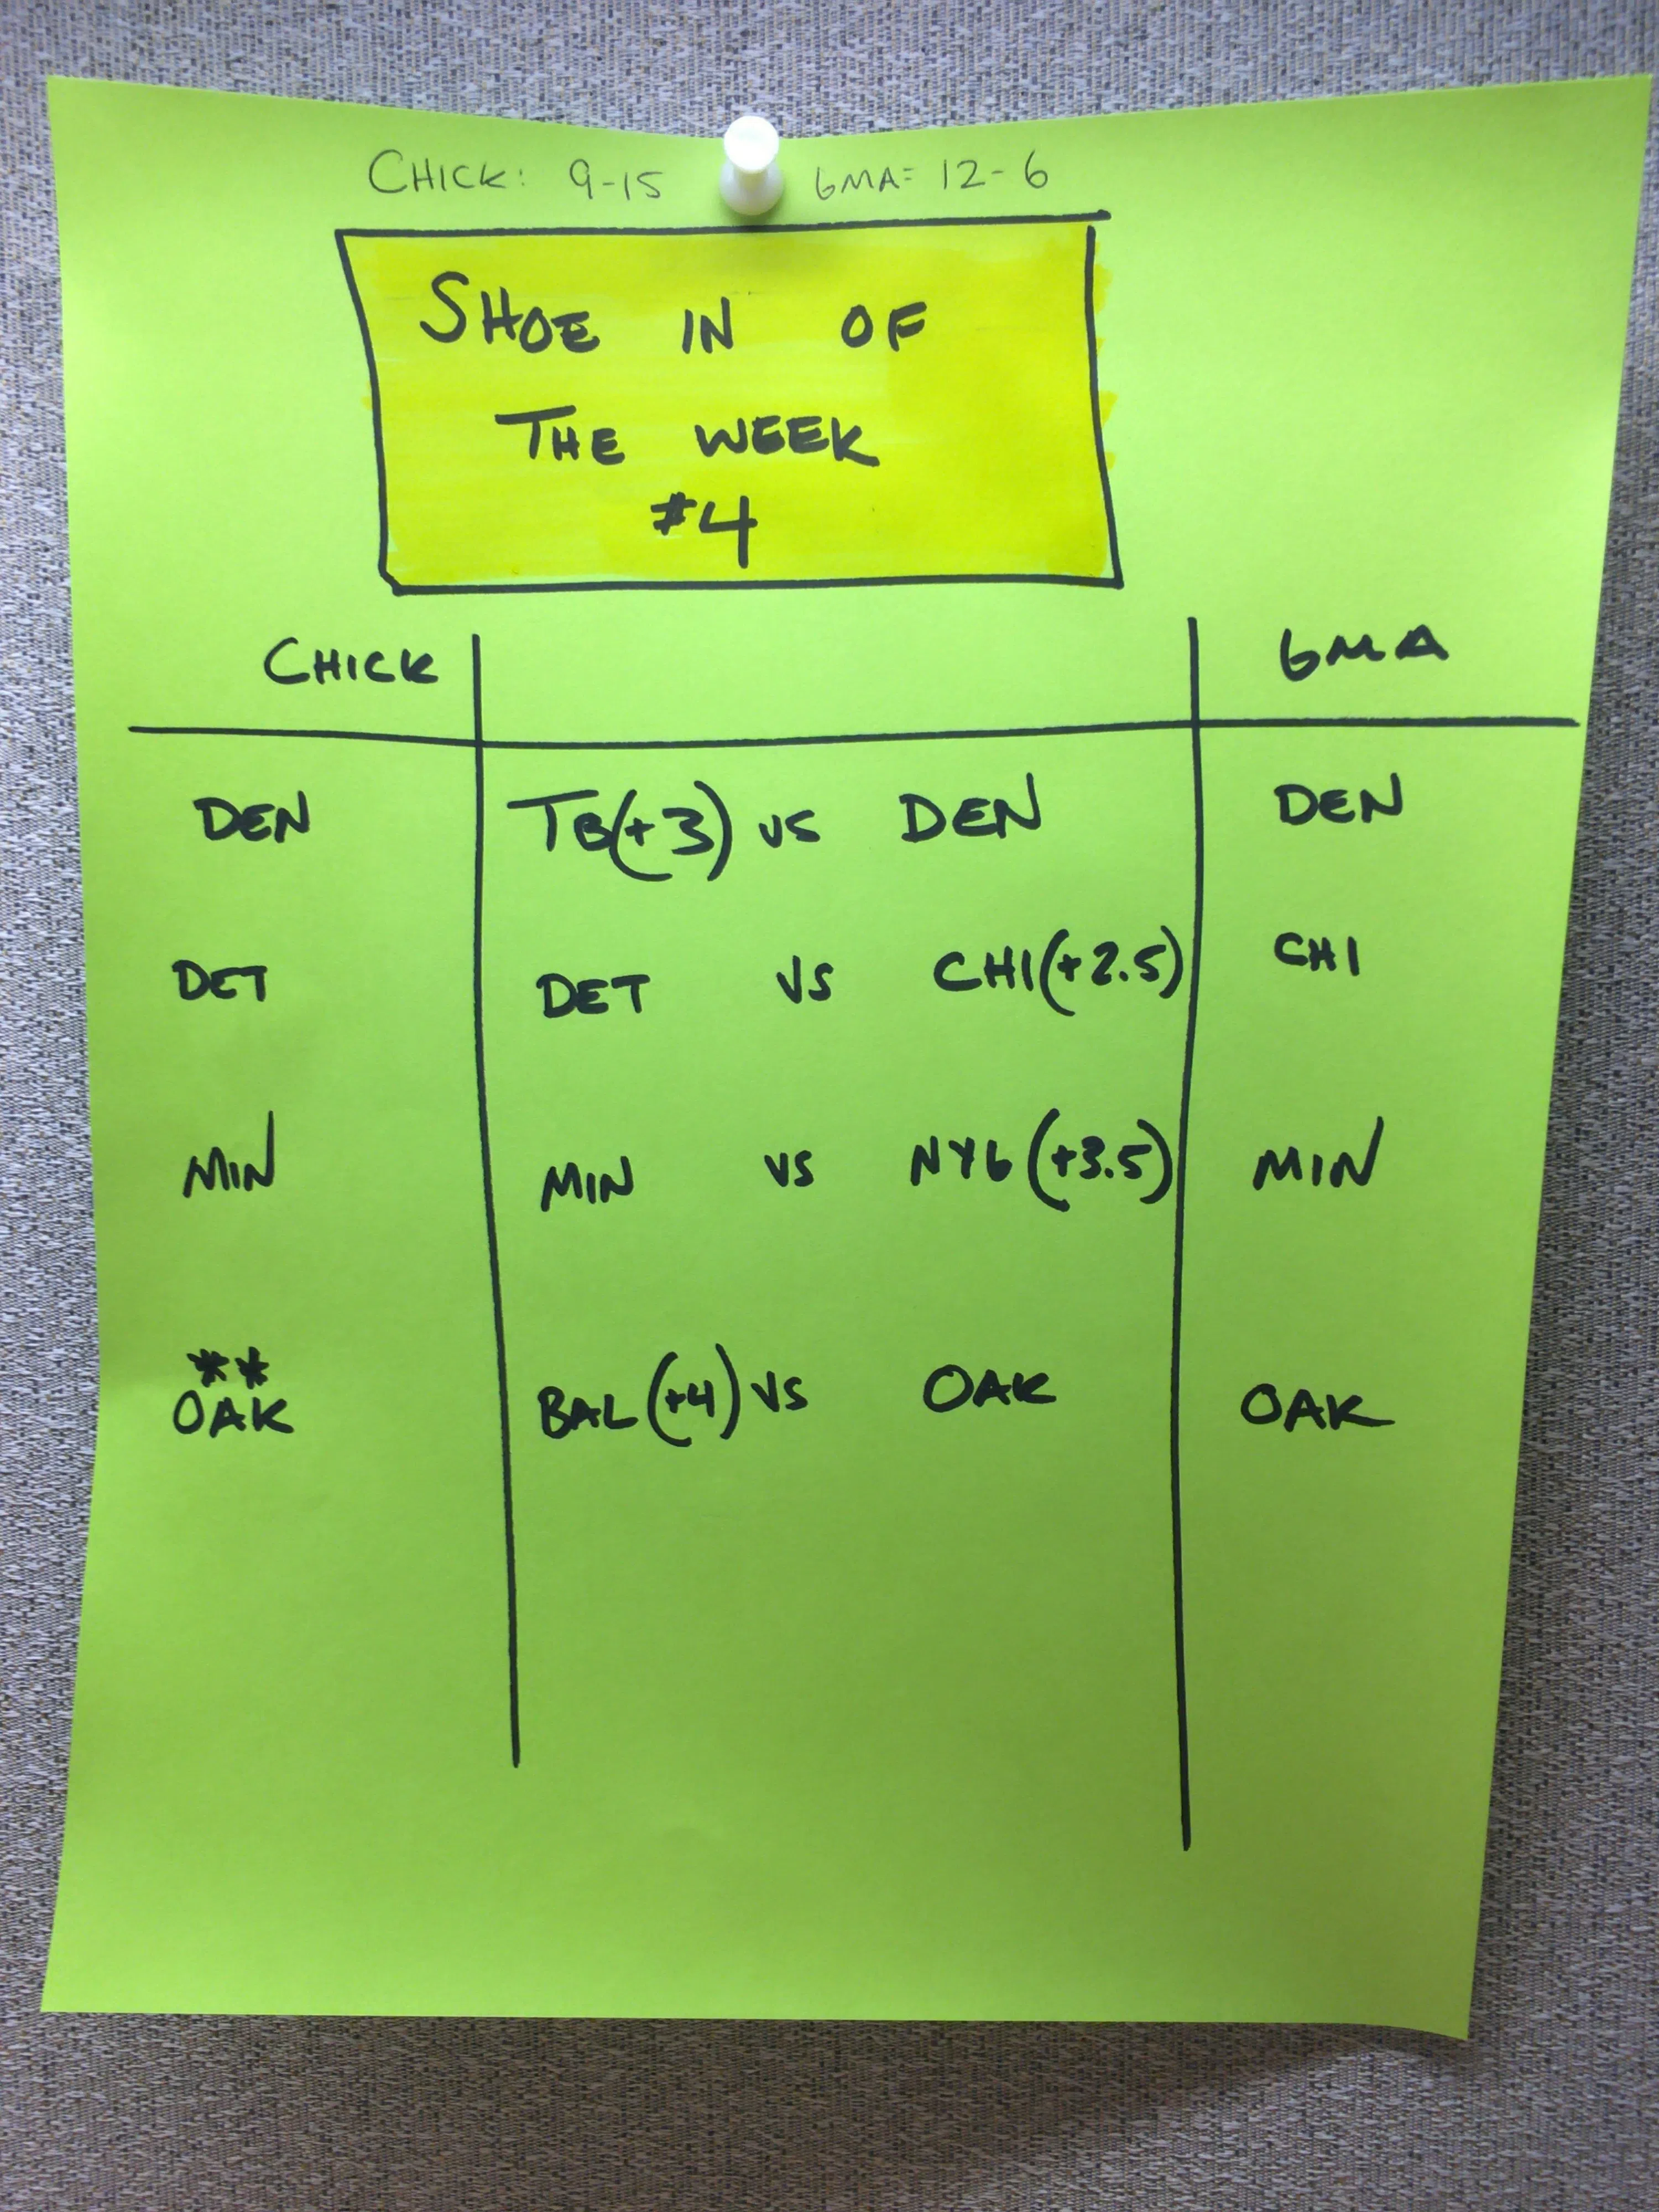 CHICK: 9-15 GMA= 12-6
SHOE IN OF
THE WEEK
#4
CHICK GMA
DEN TB(+3) VS DEN DEN
DET DET VS CHI(+2.5) CHI
MIN MIN VS NYG(+3.5) MIN
**
OAK BAL(+4) VS OAK OAK